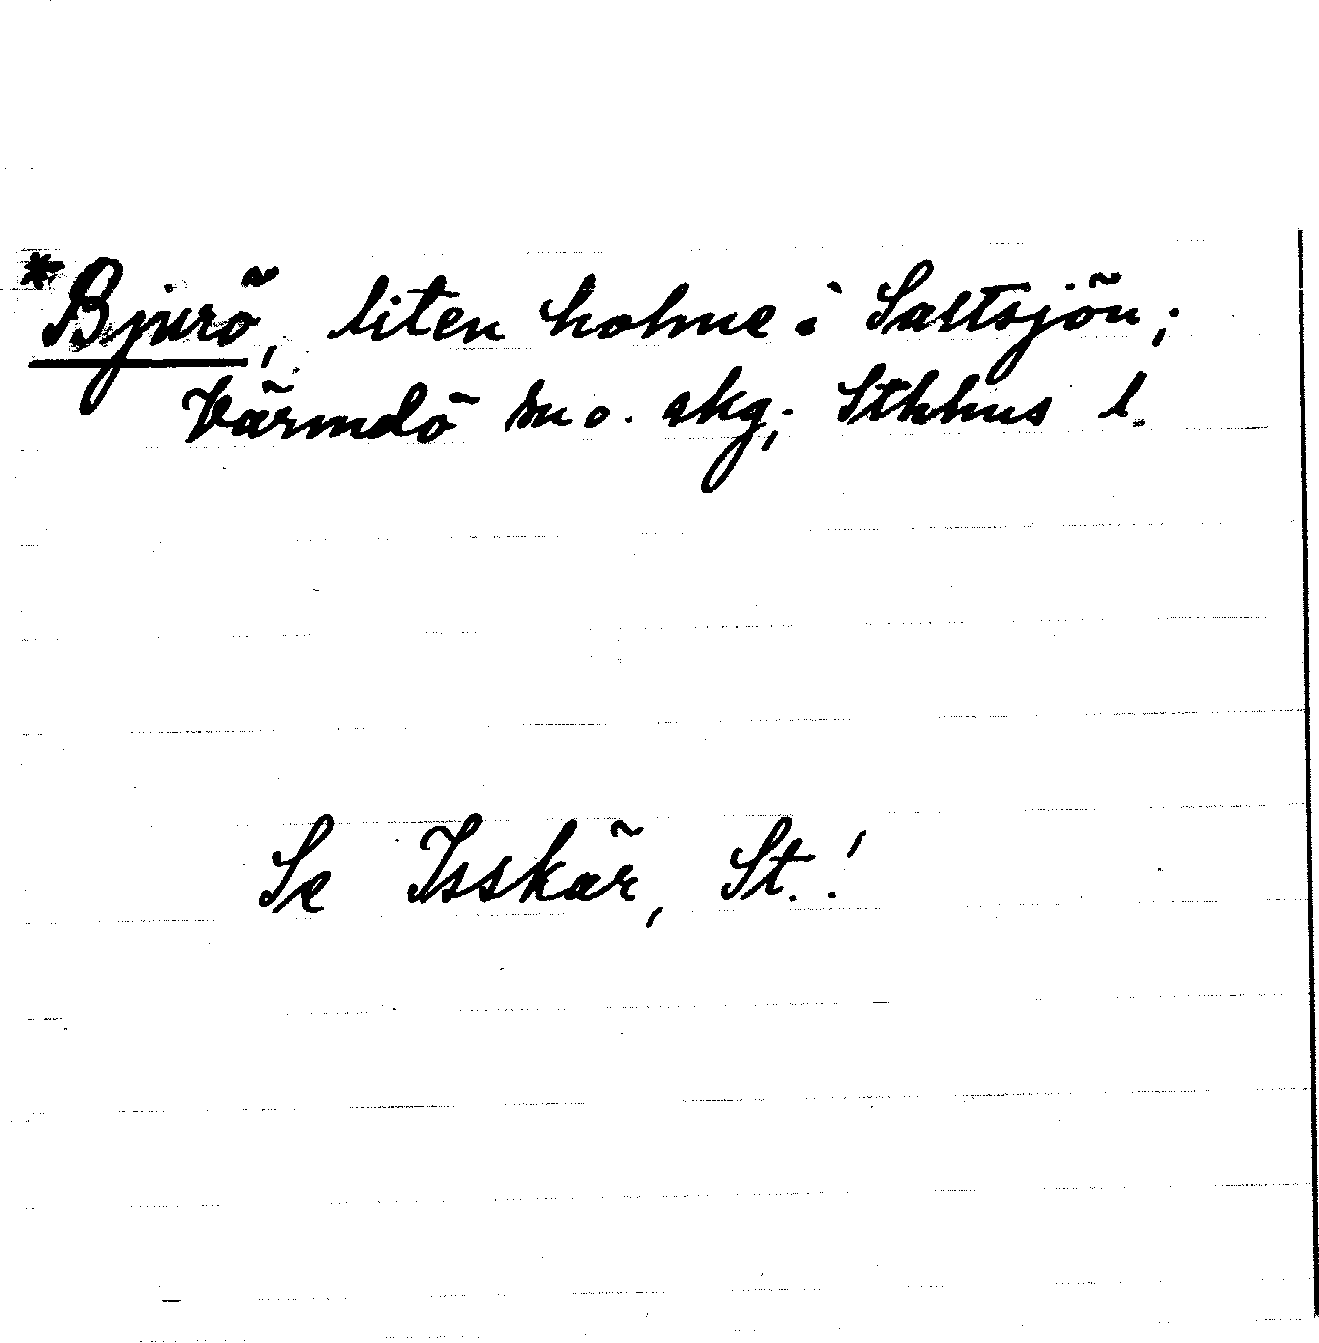 *Bjurö, liten holme i Saltsjön;
Värmdö sn o. skg; Sthlms l.
Se Isskär, St.!